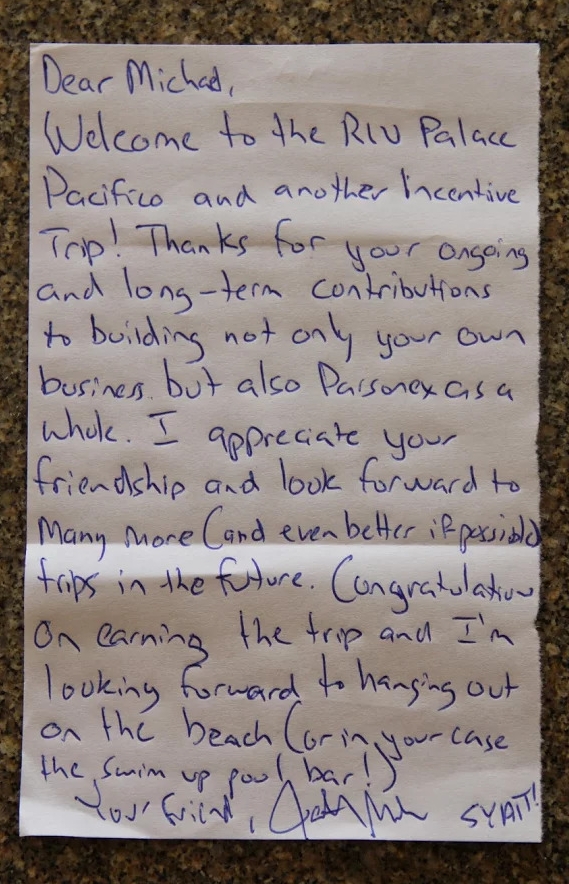 Dear Michael,
Welcome to the RIU Palace
Pacifico and another Incentive
Trip! Thanks for your ongoing
and long-term contributions
to building not only your own
business but also Parsonex as a
whole. I appreciate your
friendship and look forward to
many more (and even better if possible)
trips in the future. Congratulations
on earning the trip and I'm
looking forward to hanging out
on the beach (or in your case
the swim up pool bar!)
Your friend,
SYAIT!